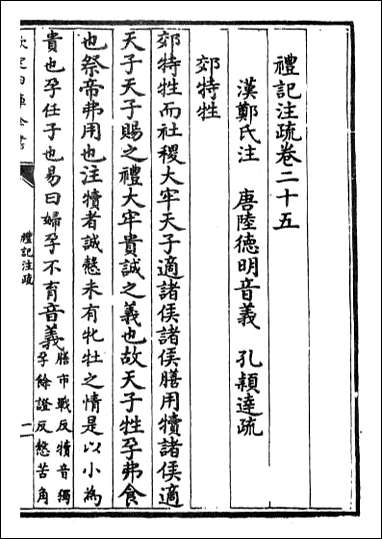 禮記注疏卷二十五
漢鄭氏注 唐陸德明音義 孔穎達疏
郊特牲
郊特牲而社稷大牢天子適諸侯諸侯膳用犢諸侯適
天子天子賜之禮大牢貴誠之義也故天子牲孕弗食
也祭帝弗用也注犢者誠慤未有牝牡之情是以小為
貴也孕任子也易曰婦孕不育音義膳市戰反犢音獨
孕餘證反慤苦角
欽定四庫全書
禮記注疏
二